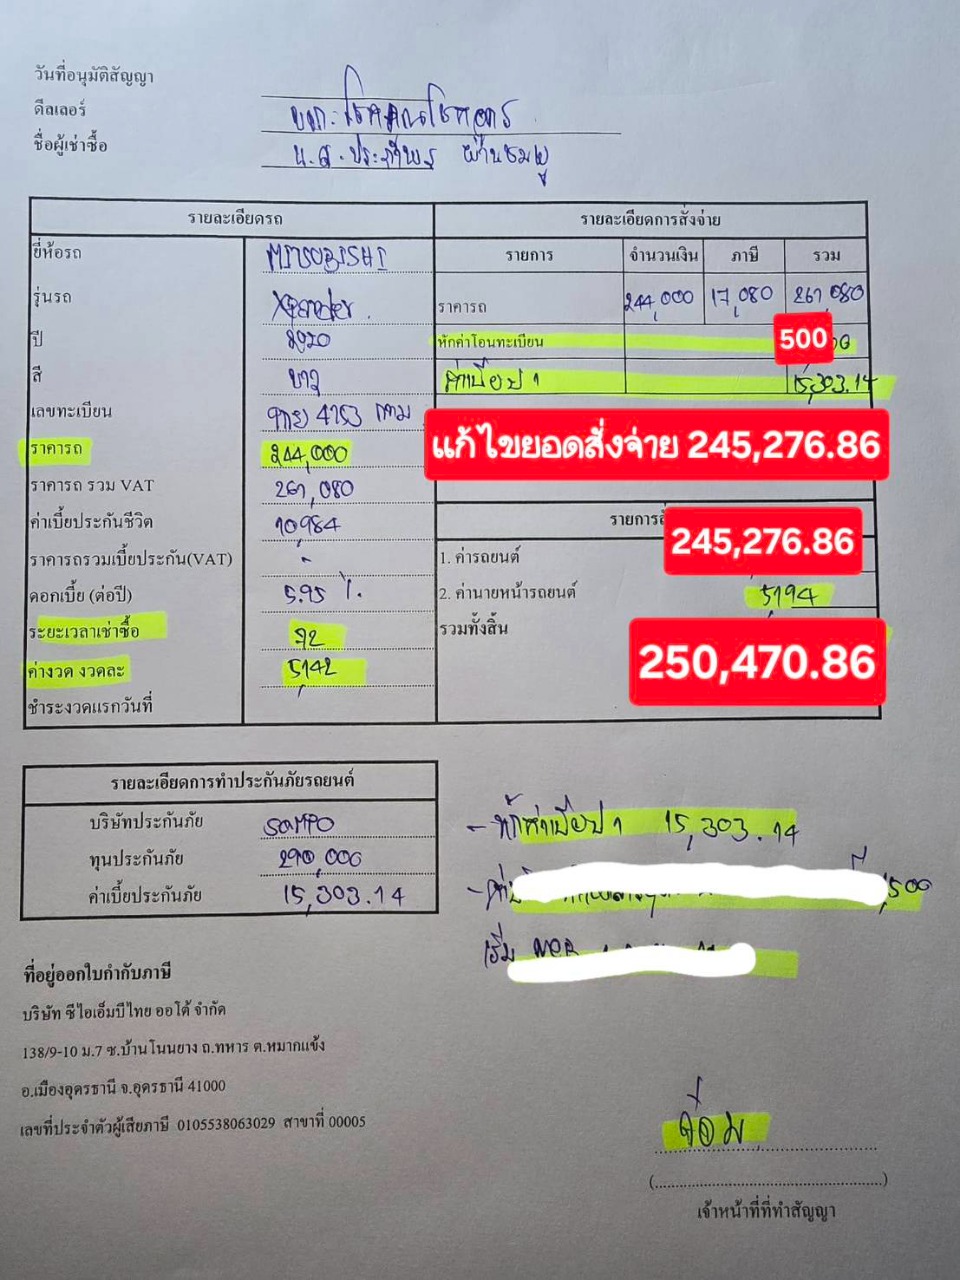 วันที่อนุมัติสัญญา
ดีลเลอร์ บจก.โชคคูณโชคอุดร
ชื่อผู้เช่าซื้อ น.ส.ประภาพร
รายละเอียดรถ
ยี่ห้อรถ MITSUBISHI
รุ่นรถ Xpander.
ปี 2020
สี ขาว
เลขทะเบียน 4753 กทม
ราคารถ 244,000
ราคารถ รวม VAT 261,080
ค่าเบี้ยประกันชีวิต 10,984
ราคารถรวมเบี้ยประกัน(VAT) -
ดอกเบี้ย (ต่อปี) 5.95 %
ระยะเวลาเช่าซื้อ 72
ค่างวด งวดละ 5,142
ชำระงวดแรกวันที่
รายละเอียดการสั่งจ่าย
รายการ จำนวนเงิน ภาษี รวม
ราคารถ 244,000 17,080 261,080
หักค่าโอนทะเบียน 500
ค่าเบี้ยป 1 15,303.14
แก้ไขยอดสั่งจ่าย 245,276.86
รายการสั่
1. ค่ารถยนต์ 245,276.86
2. ค่านายหน้ารถยนต์ 5,194
รวมทั้งสิ้น 250,470.86
รายละเอียดการทำประกันภัยรถยนต์
บริษัทประกันภัย SOMPO
ทุนประกันภัย 290,000
ค่าเบี้ยประกันภัย 15,303.14
- หักค่าเบี้ยป 1 15,303.14
- ค่า
เริ่ม
ที่อยู่ออกใบกำกับภาษี
บริษัท ซีไอเอ็มบีไทย ออโต้ จำกัด
138/9-10 ม.7 ซ.บ้านโนนยาง ถ.ทหาร ต.หมากแข้ง
อ.เมืองอุดรธานี จ.อุดรธานี 41000
เลขที่ประจำตัวผู้เสียภาษี 0105538063029 สาขาที่ 00005
(..........................................)
เจ้าหน้าที่ที่ทำสัญญา